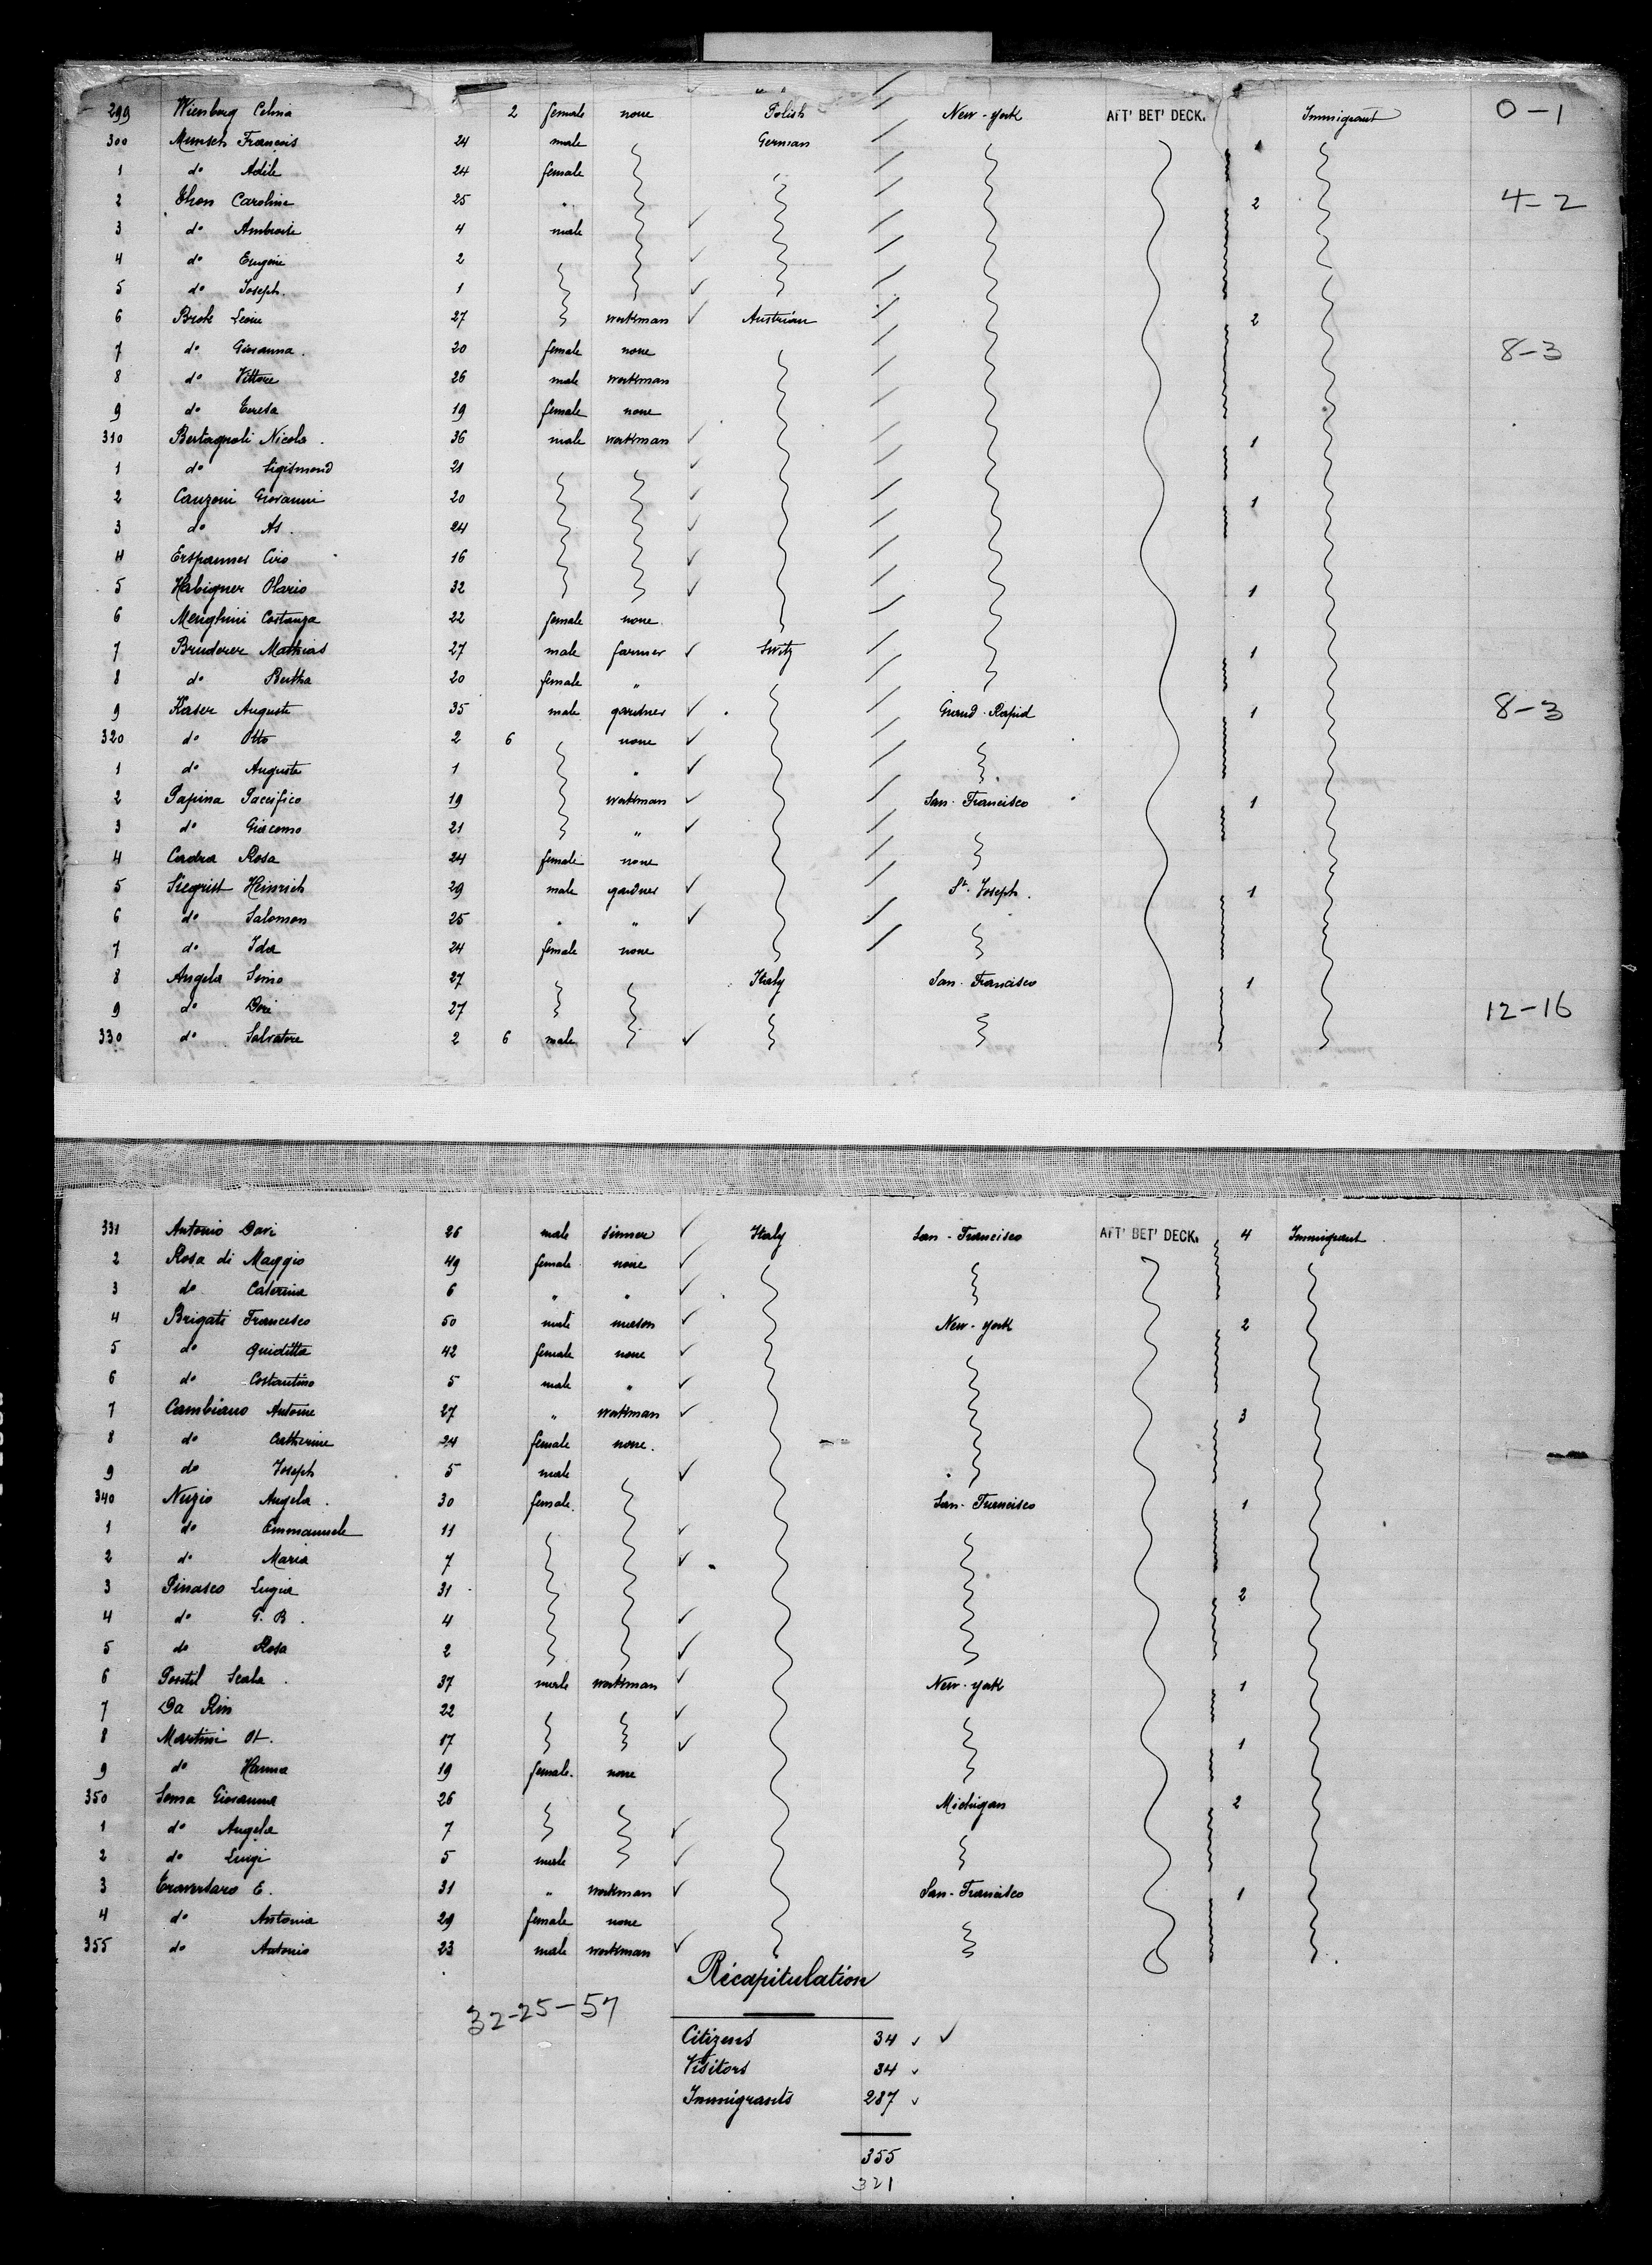 299 Wienberg Celina 2 female none Polish New-York AFT' BET' DECK. Immigrant 0-1
300 Munsch François 24 male German
1 do Adile 24 female
2 Thon Caroline 25 " 2 4-2
3 do Ambroise 4 male
4 do Eugène 2
5 do Joseph. 1
6 Brok 27 workman Austrian 2
7 do Giovanna. 20 female none 8-3
8 do Vittore 26 male workman
9 do Teresa 19 female none
310 Bertagnoli Nicola. 36 male workman 1
1 do Sigismond 21
2 Canzoni Giovanni 20 1
3 do As. 24
4 Erspanner Ciro 16
5 Habigner Olario 32 1
6 Menghini Costanza 22 female none
7 Bruderer Mathias 27 male farmer Switz 1
8 do Bertha 20 female "
9 Kaser Auguste 35 male gardner Grand-Rapid 1 8-3
320 do Otto 2 6 none
1 do Auguste 1 "
2 Papina Paccifico 19 workman San-Francisco 1
3 do Giacomo 21 "
4 Cadra Rosa 24 female none
5 Siegrist Heinrich 29 male gardner St. Joseph. 1
6 do Salomon 25 " "
7 do Ida 24 female none
8 Angela Simo 27 Italy San-Francisco 1
9 do Dori 27 12-16
330 do Salvatore 2 6 male
331 Antonio Dari 26 male sinner Italy San-Francisco AFT' BET' DECK. 4 Immigrant
2 Rosa di Maggio 49 female none
3 do Caterina 6 " "
4 Brigati Francesco 50 male mason New-York 2
5 do Quiditta 42 female none
6 do Costantino 5 male "
7 Cambiano Antoine 27 " workman 3
8 do Catherine 24 female none.
9 do Joseph 5 male
340 Nuzio Angela. 30 female. San-Francisco 1
1 do Emmanuele 11
2 do Maria 7
3 Pinasco Luigia 31 2
4 do G. B. 4
5 do Rosa 2
6 Pontil Scala. 37 male workman New-York 1
7 Da Rin 22
8 Martini Ot. 17 1
9 do Hanna 19 female. none
350 Sema Giovanna 26 Michigan 2
1 do Angela 7
2 do Luigi 5 male
3 Traversaro E. 31 " workman San-Francisco 1
4 do Antonia 29 female none
355 do Antonio 23 male workman
Récapitulation
32-25-57
Citizens 34
Visitors 34
Immigrants 287
355
321